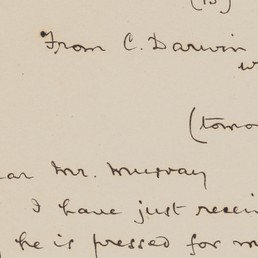 (15)
From C. Darwin
(tomo
ear Mr. Murray
I have just recei
he is pressed for m